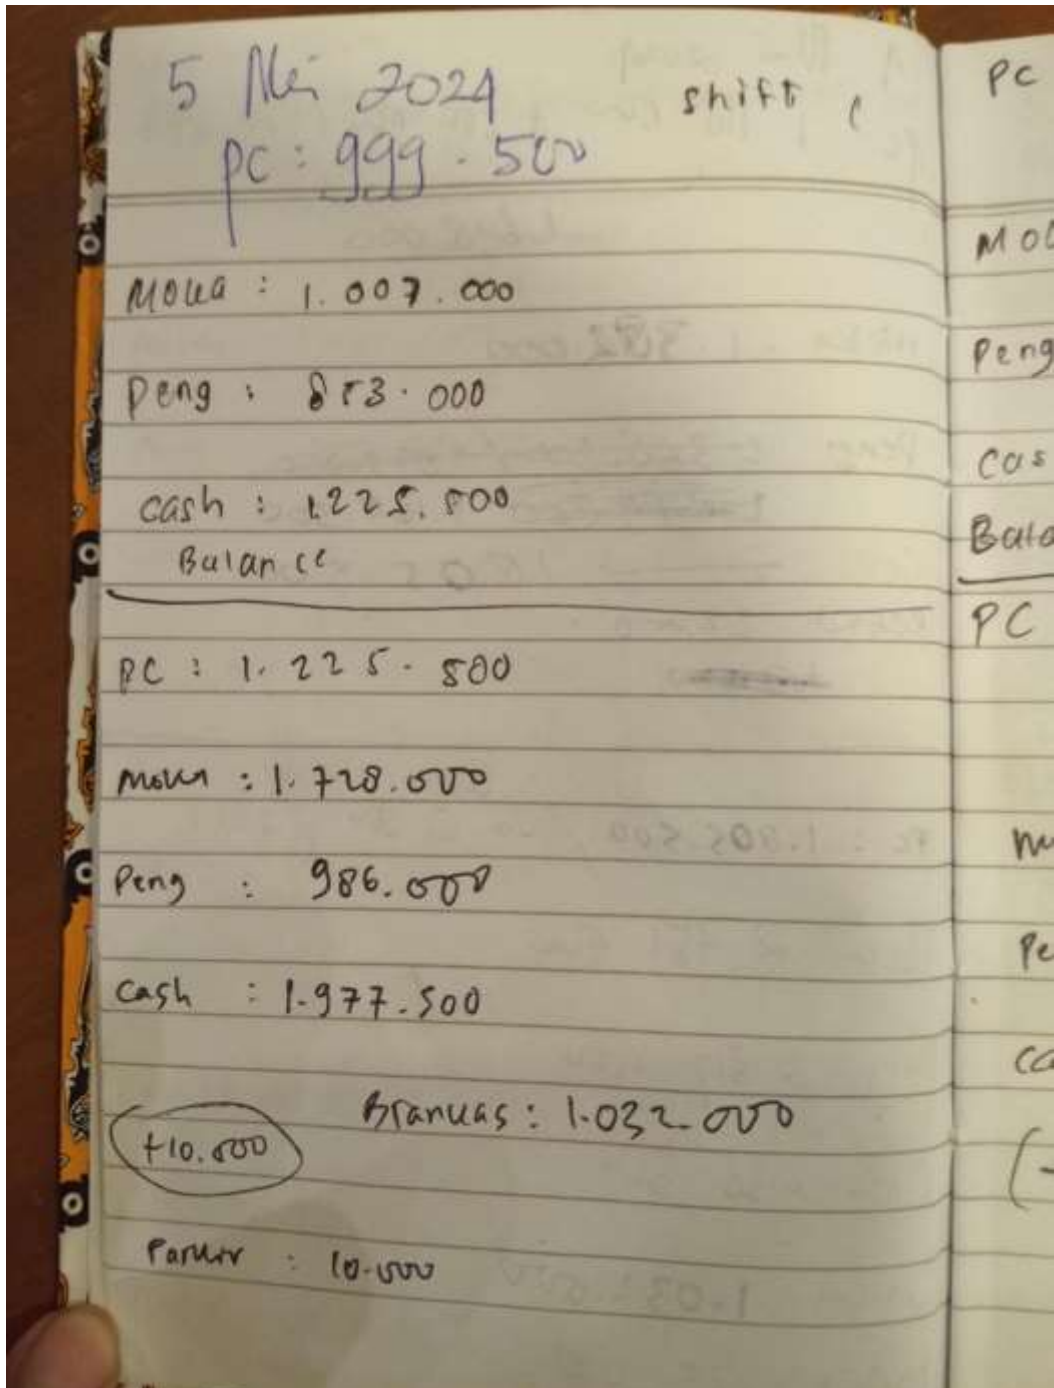 5 Mei 2024
shift
PC : 999.500
Moka : 1.007.000
Peng : 853.000
cash : 1.225.500
Balance
PC : 1.225.500
Moka : 1.728.000
Peng : 986.000
Cash : 1.977.500
Brankas : 1.032.000
+10.000
Parkir : 10.000
PC
Peng
PC